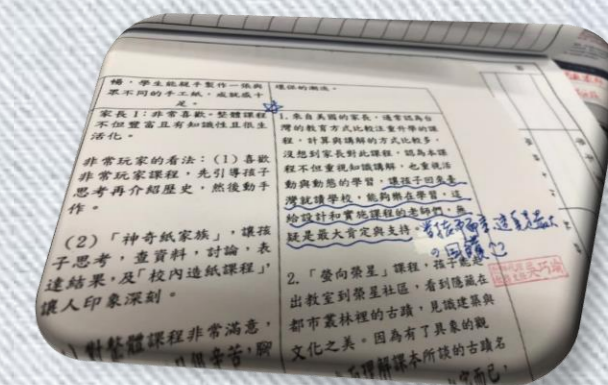 暢，學生能親手製作一張與
眾不同的手工紙，成就感十
足。
家長1：非常喜歡，整體課程
不但豐富且有知識性且很生
活化。
非常玩家的看法：(1)喜歡
非常玩家課程，先引導孩子
思考再介紹歷史，然後動手
作。
(2)「神奇紙家族」，讓孩
子思考，查資料，討論，表
達結果，及「校內造紙課程」，
讓人印象深刻。
對整體課程非常滿意，
環保的潮流。
1. 來自美國的家長，通常認為台
灣的教育方式比較注重升學的課
程，計算與講解的方式比較多，
沒想到家長對此課程，認為本課
程不但重視知識講解，也重視活
動與動態的學習，讓孩子回來臺
灣就讀學校，能夠樂在學習，這
給設計和實施課程的老師們，無
疑是最大肯定與支持。
的回護
2.「螢向榮星」課程，孩子
出教室到榮星社區，看到隱藏在
都市叢林裡的古蹟，見識建築與
文化之美。因為有了具象的觀
理解課本所談的古蹟名